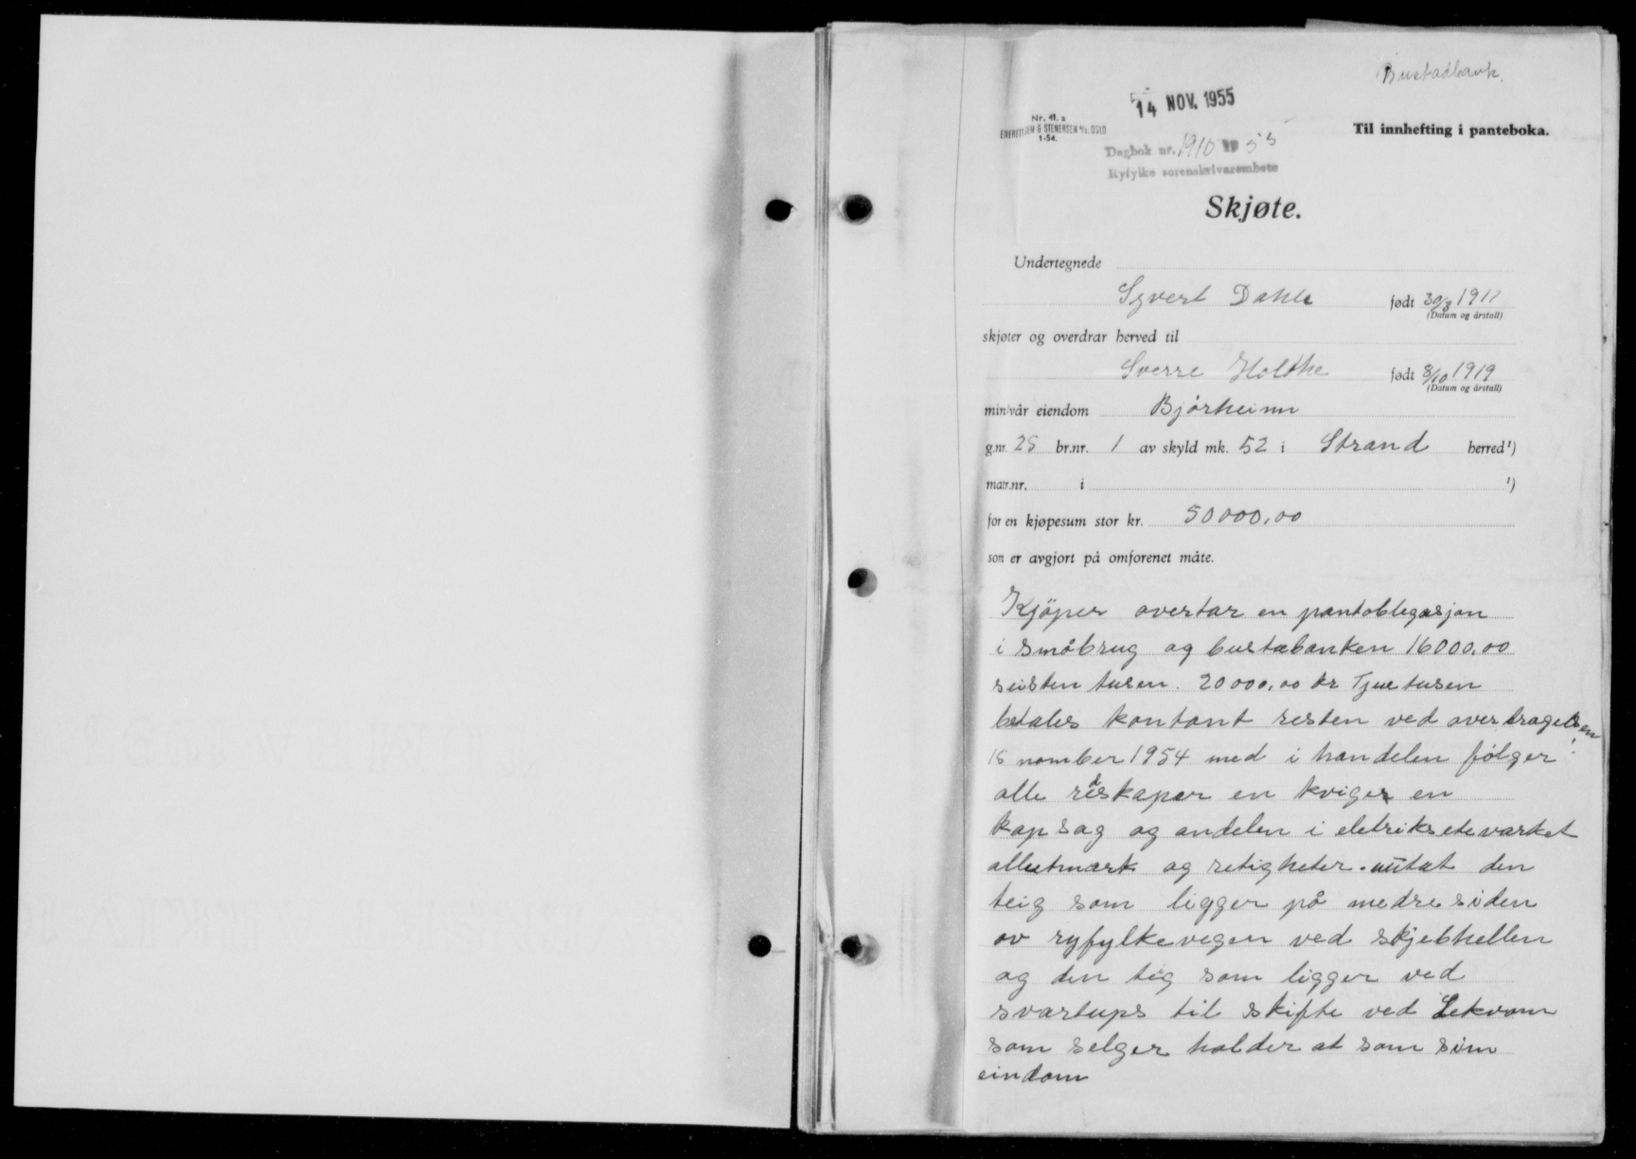 Bustadbank.
14 NOV. 1955
Nr. 41. a
EIVERETT SEM & STENERSEN A/S. OSLO
1-54.
Til innhefting i panteboka.
Dagbok nr. 1910 19 55
Ryfylke sorenskrivarembete
Skjøte.
Undertegnede
Syvert Dahle født 30/8 1911
(Datum og årstall)
skjøter og overdrar herved til
Sverre Holthe født 8/10 1919
(Datum og årstall)
min/vår eiendom Bjørheim
g.nr. 25 br.nr. 1 av skyld mk. 52 i Strand herred ¹)
matr.nr. i ¹)
for en kjøpesum stor kr. 50000,00
som er avgjort på omforenet måte.
Kjöper overtar en pantobligasjon
i småbrug og bustabanken 16000.00
seisten tusen. 20000,00 kr Tjue tusen
betales kontant resten ved overdragelsen
15 nomber 1954 med i handelen følger
alle redskaper en kviger en
kapsag og andelen i eletriksetevarket
alleutmark og retigheter. untat den
teig som ligger på nedre siden
av ryfylkevegen ved skjebhellen
og den teig som ligger ved
svartups til skifte ved Lekvam
som selger holder at som sim
eindom